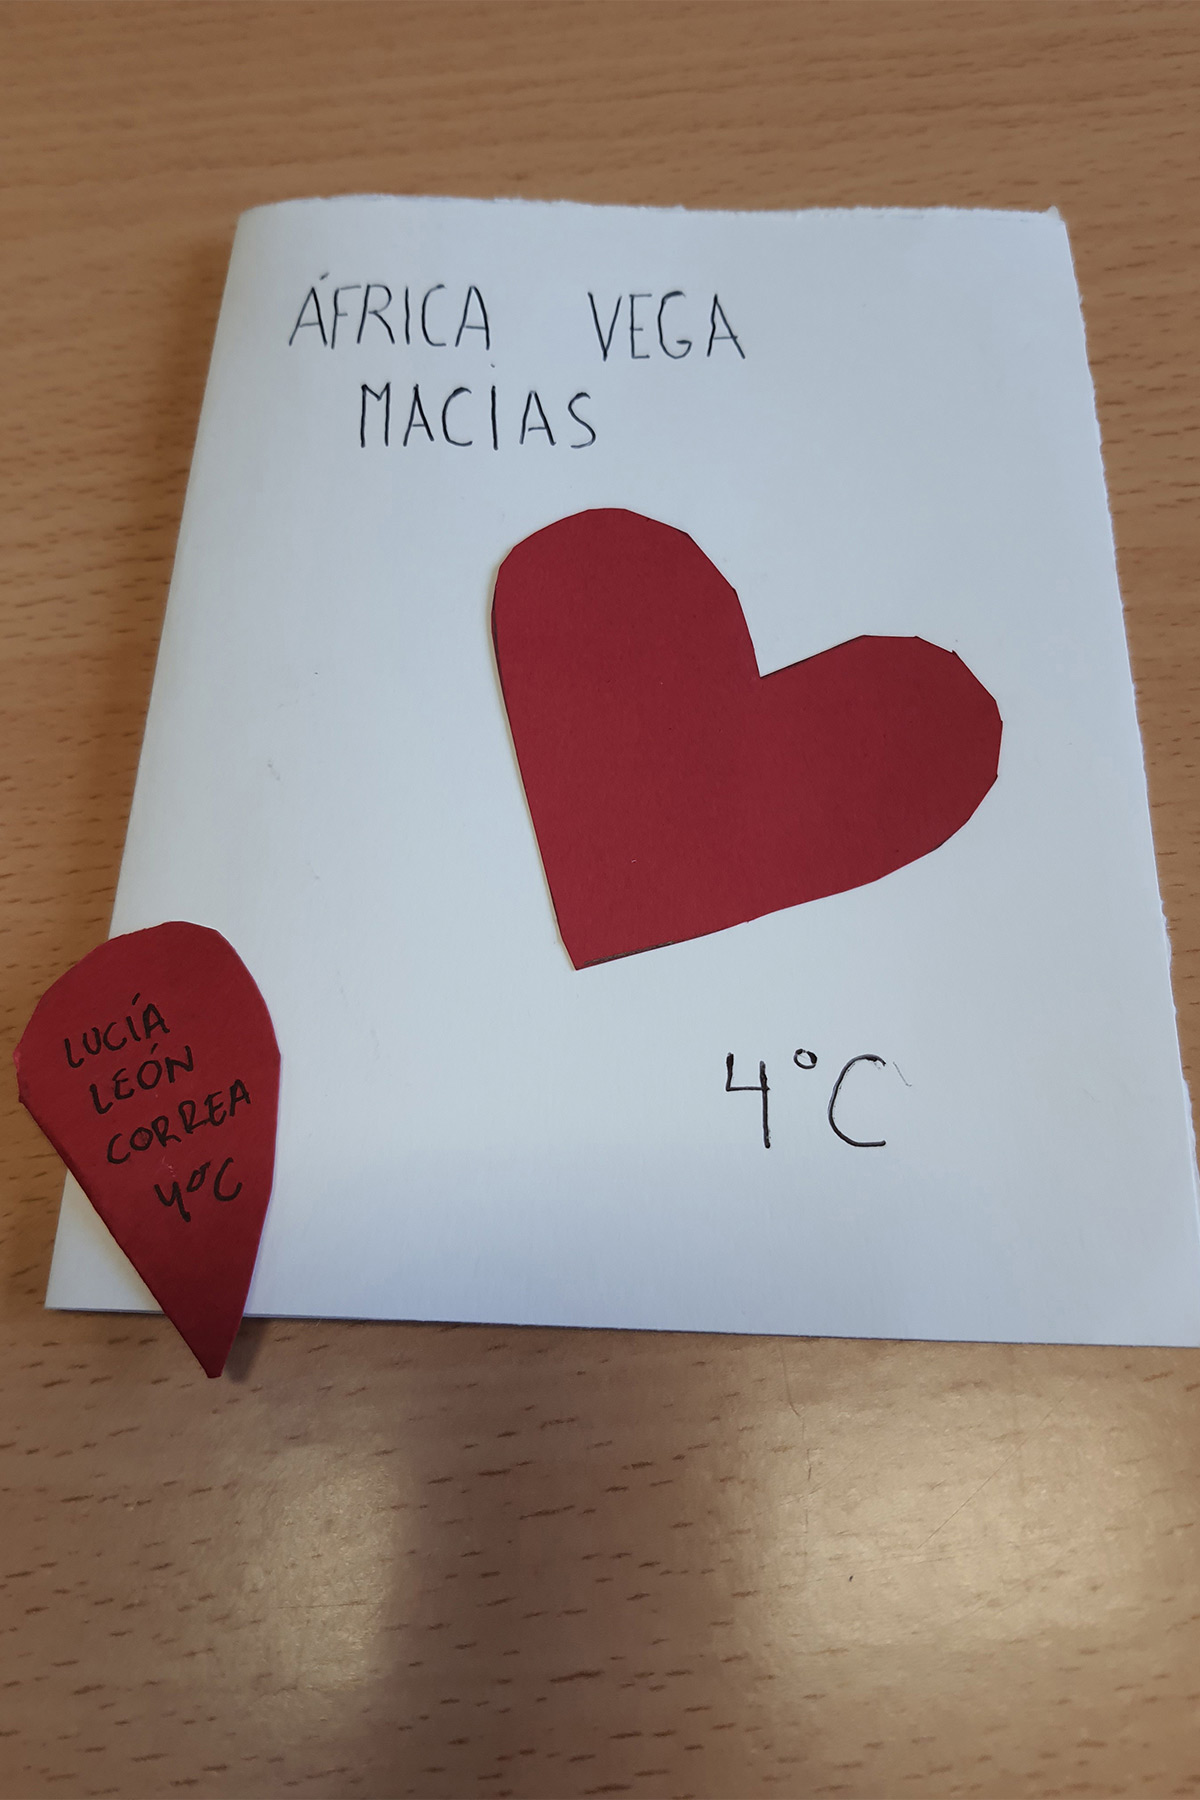 ÁFRICA VEGA
MACÍAS
4°C
LUCÍA
LEÓN
CORREA
4°C